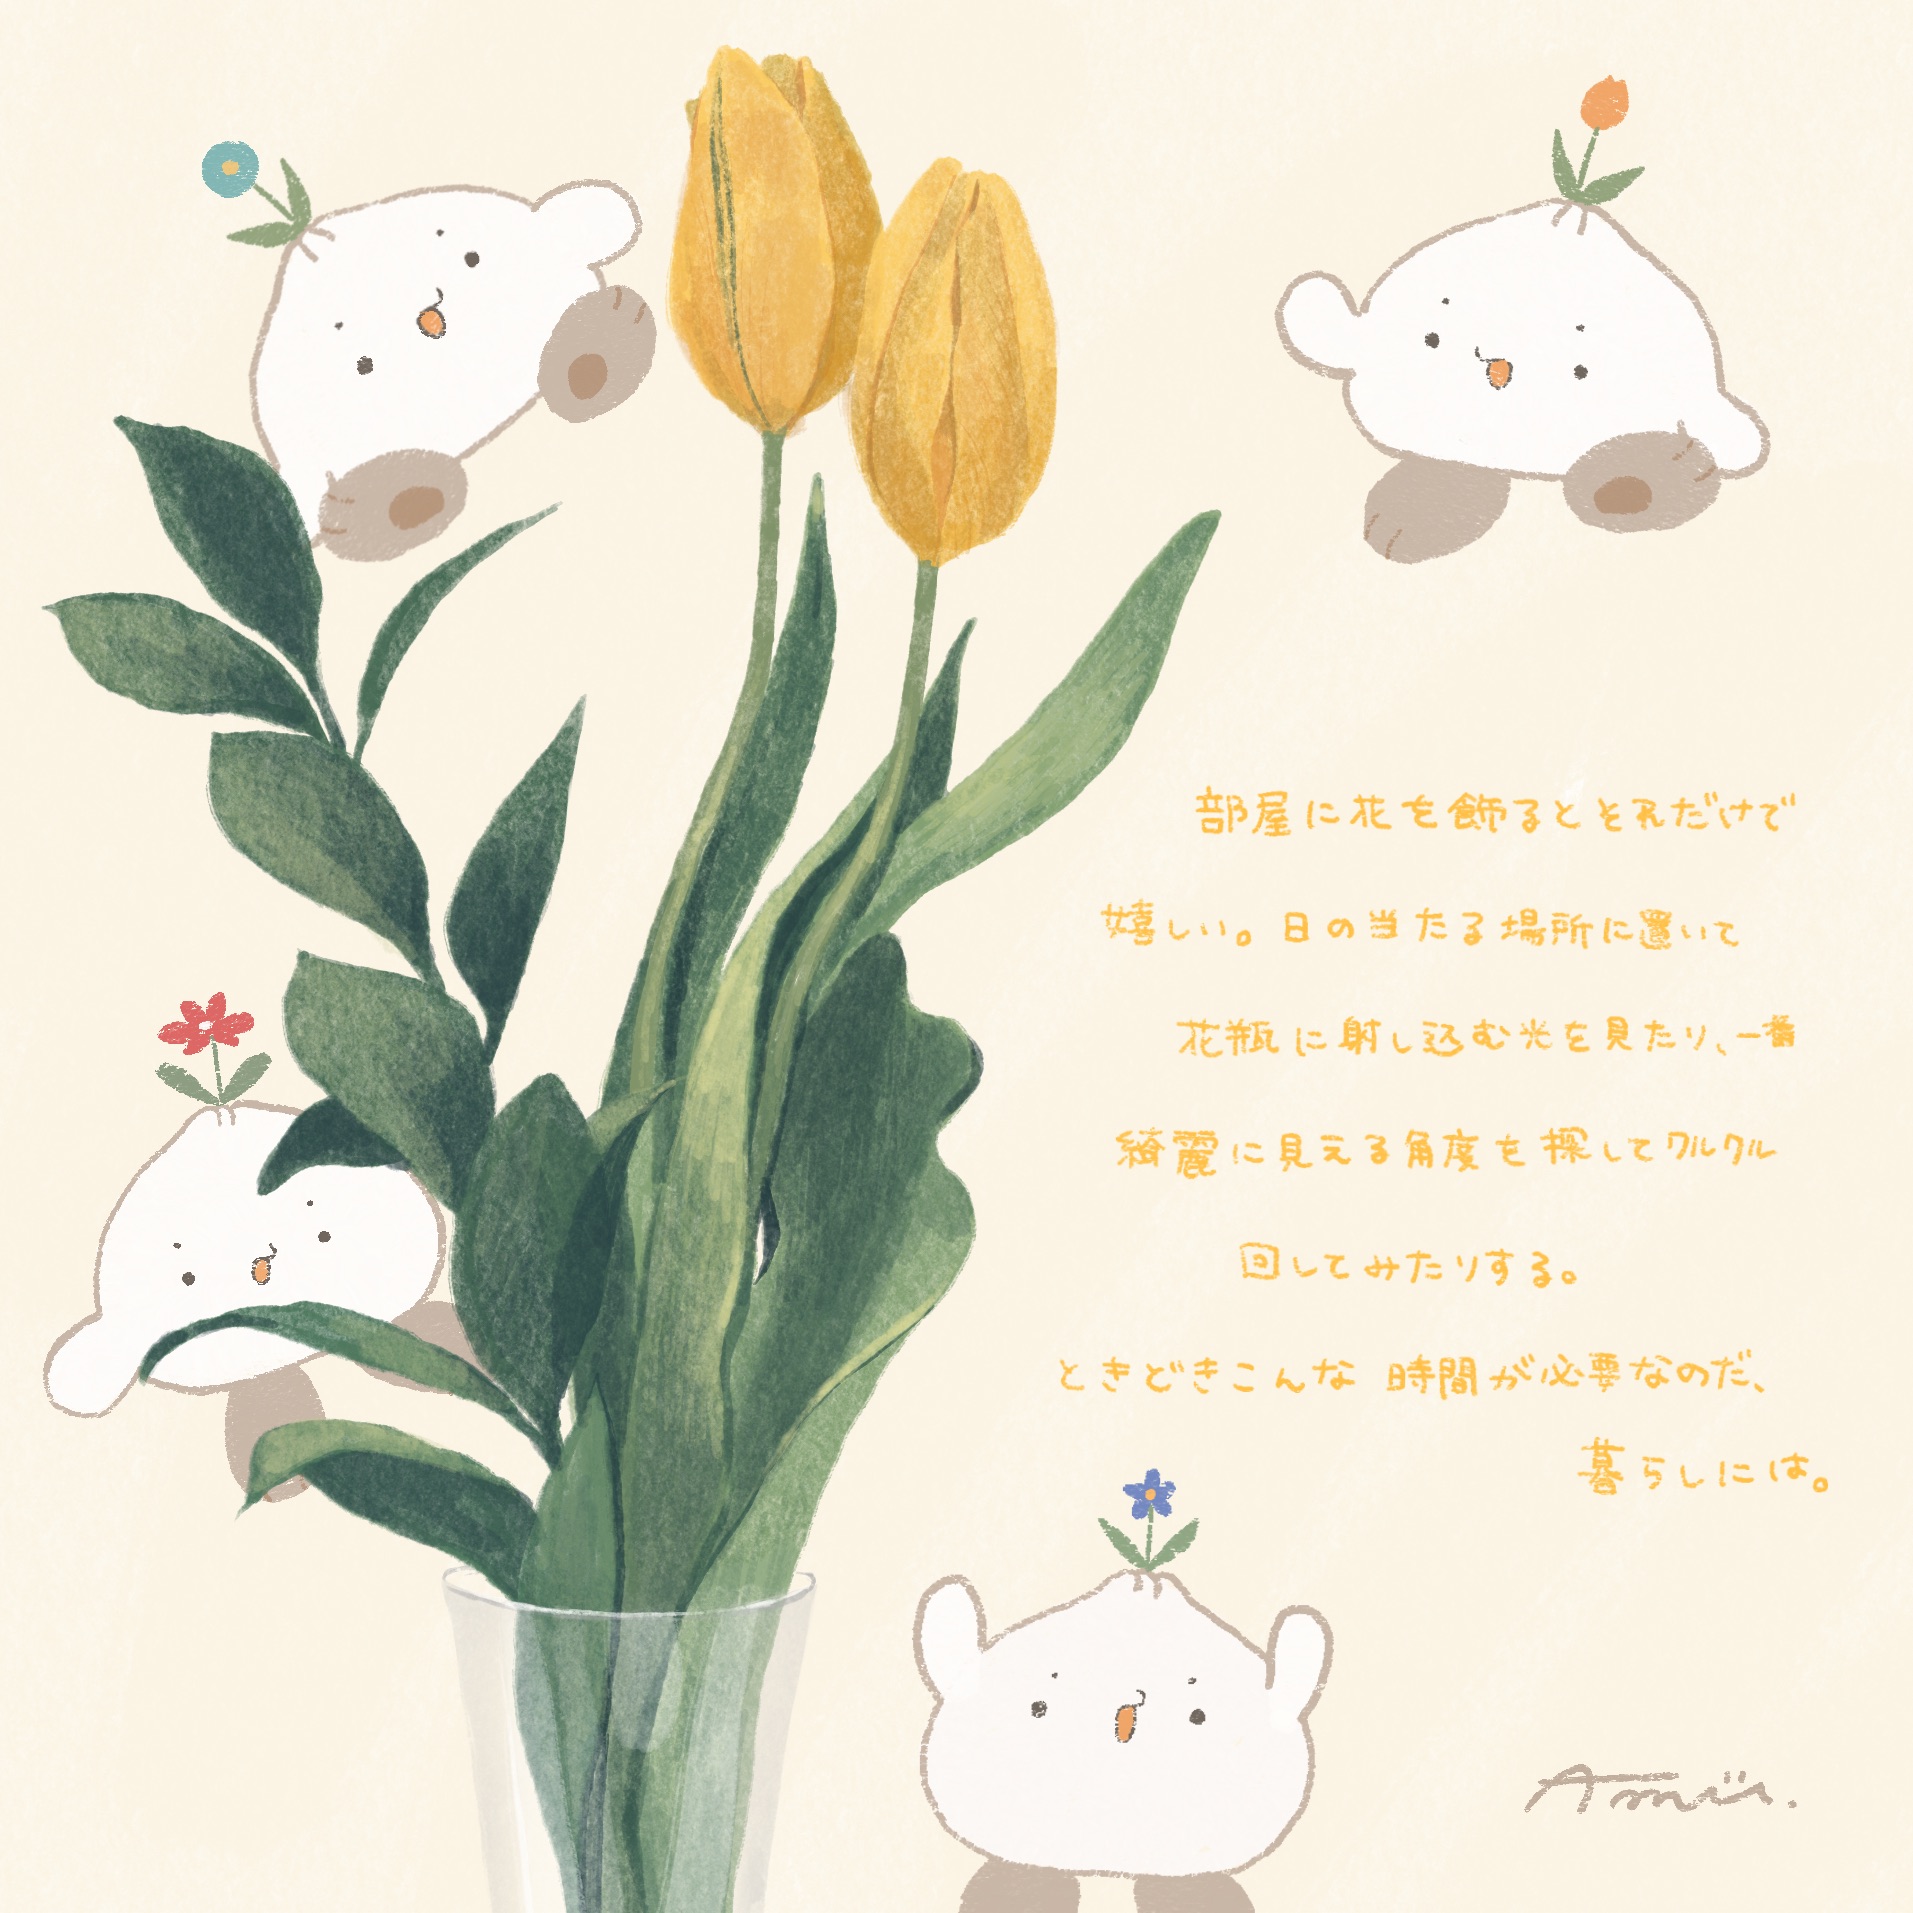 部屋に花を飾るとそれだけで
嬉しい。日の当たる場所に置いて
花瓶に射し込む光を見たり、一番
綺麗に見える角度を探してクルクル
回してみたりする。
ときどきこんな 時間が必要なのだ、
暮らしには。